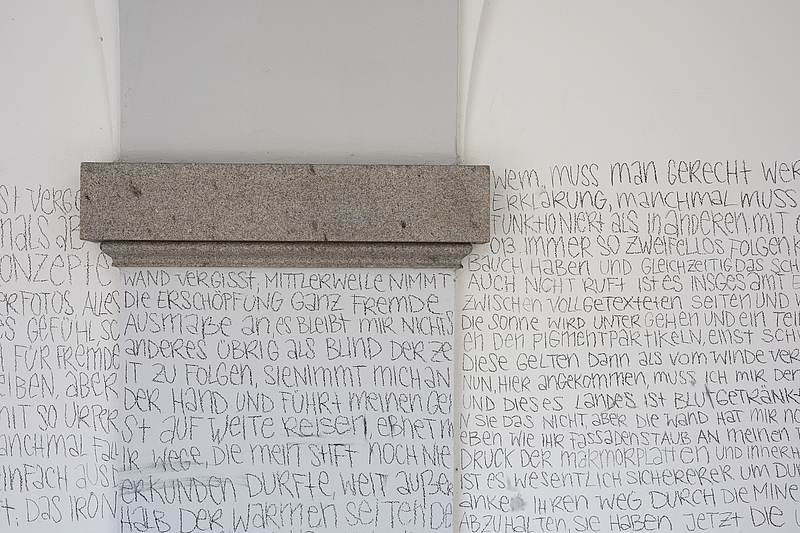 ST VERGE
MALS AL
ONZEPTE
ERFOTOS, ALLES
ES GEFÜHL SO
FÜR FREMDE
EIBEN, ABER
MIT SO URPER
ANCHMAL FAL
EINFACH AUS
T. DAS IRON
WAND VERGISST, MITTLERWEILE NIMMT
DIE ERSCHÖPFUNG GANZ FREMDE
AUSMAßE AN, ES BLEIBT MIR NICHTS
ANDERES ÜBRIG ALS BLIND DER ZE
IT ZU FOLGEN, SIE NIMMT MICH AN
DER HAND UND FÜHRT MEINEN GEI
ST AUF WEITE REISEN, EBNET M
IR WEGE, DIE MEIN STIFT NOCH NIE
ERKUNDEN DURFTE, WEIT AUßER
HALB DER WARMEN SEITEN DE
WEM, MUSS MAN GERECHT WER
ERKLÄRUNG, MANCHMAL MUSS
FUNKTIONIERT ALS IN ANDEREN. MIT
OIS. IMMER SO ZWEIFELLOS FOLGEN K
BAUCH HABEN UND GLEICHZEITIG DAS SCH
AUCH NICHT RUFT IST ES INSGESAMT E
ZWISCHEN VOLLGETEXTETEN SEITEN UND
DIE SONNE WIRD UNTERGEHEN UND EIN TEIL
EH DEN PIGMENTPARTIKELN, EINST SCHW
DIESE GELTEN DANN ALS VOM WINDE VERW
NUN, HIER ANGEKOMMEN, MUSS ICH MIR DEN
UND DIESES LANDES IST BLUTGETRÄNKT
N SIE DAS NICHT, ABER DIE WAND HAT MIR NO
EBEN WIE IHR FASSADENSTAUB AN MEINEN
DRUCK DER MARMORPLATTEN UND INNERH
IST ES WESENTLICH SICHERERER UM DUR
ANKE IHREN WEG DURCH DIE MINE
ABZUHALTEN, SIE HABEN JETZT DIE